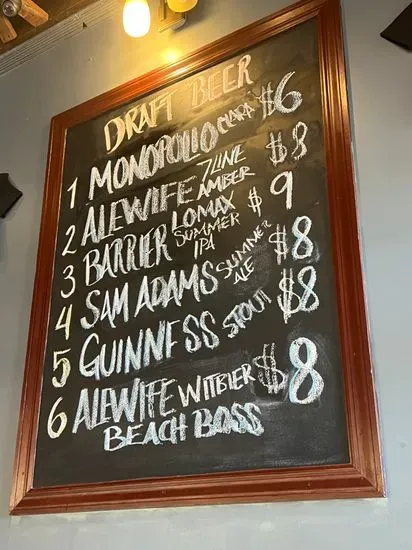 DRAFT BEER
1 MONOPOLIO CLARA $6
2 ALEWIFE 7 LINE AMBER $8
3 BARRIER LOMAX SUMMER IPA $9
4 SAM ADAMS SUMMER ALE $8
5 GUINNESS STOUT $8
6 ALEWIFE WITBIER $8
BEACH BOSS